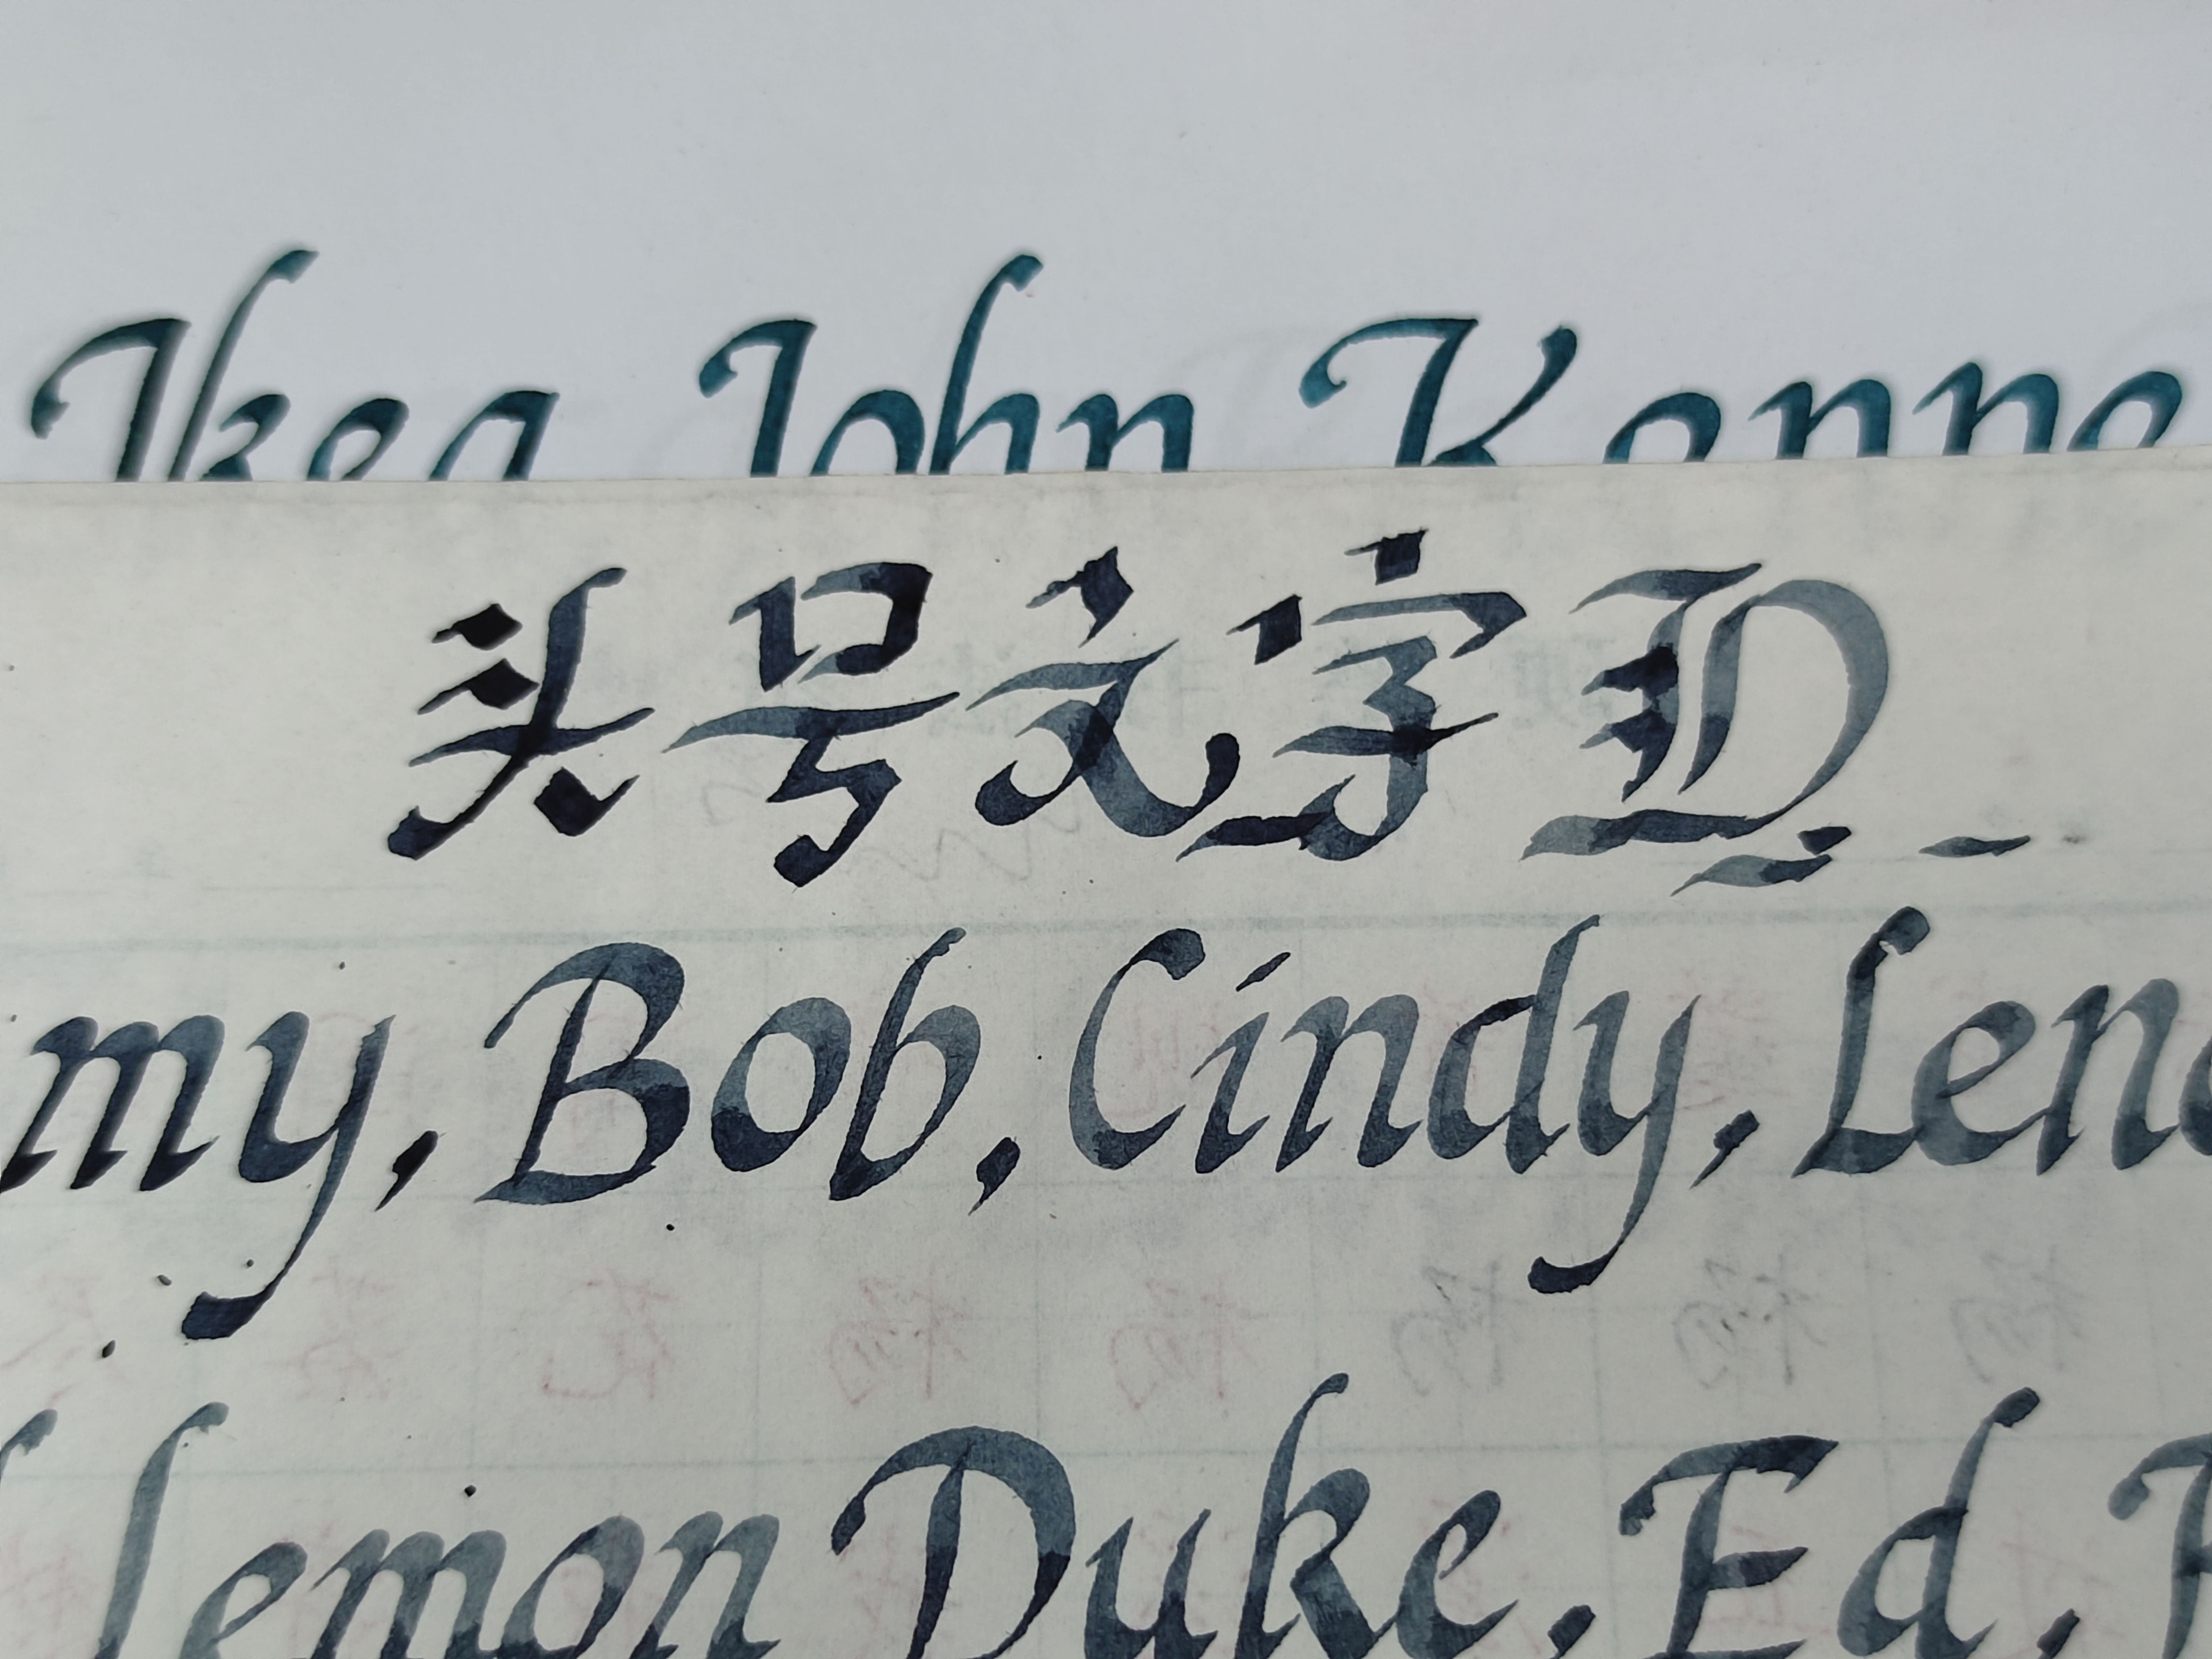 Ikea John Kenne
头号文字D
my, Bob, Cindy, Lena
lemon Duke, Ed, F